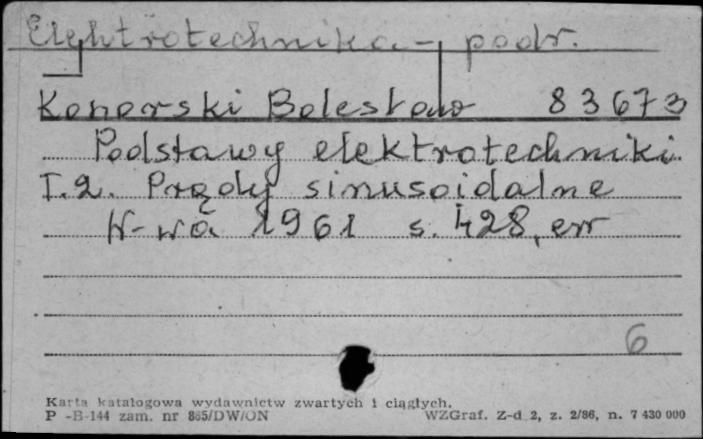 Elektrotechnika - podr.
Konorski Bolesław 83673
Podstawy elektrotechniki.
T.2. Prądy sinusoidalne
W-wa 1961 s. 428, err
6
Karta katalogowa wydawnictw zwartych i ciągłych.
P -B-144 zam. nr 865/DW/ON WZGraf. Z-d 2, z. 2/86, n. 7 430 000